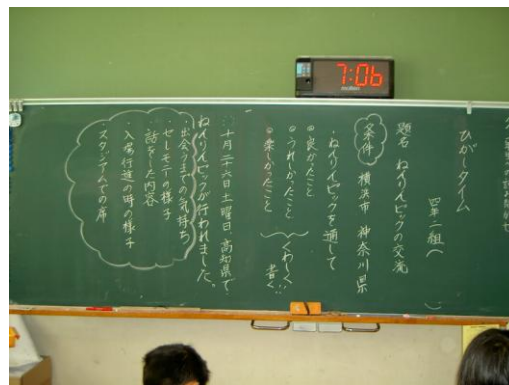 7:06
molten
ひがしタイム
四年一組( )
題名 ねんりんピックの交流
条件 横浜市 神奈川県
・ねんりんピックを通して
◎良かったこと
◎うれしかったこと
◎楽しかったこと
くわしく
書く。
十月二十六日土曜日、高知県で、
ねんりんピックが行われました。
・出会うまでの気持ち
・セレモニーの様子
・話をした内容
・入場行進の時の様子
スタジアムでの席